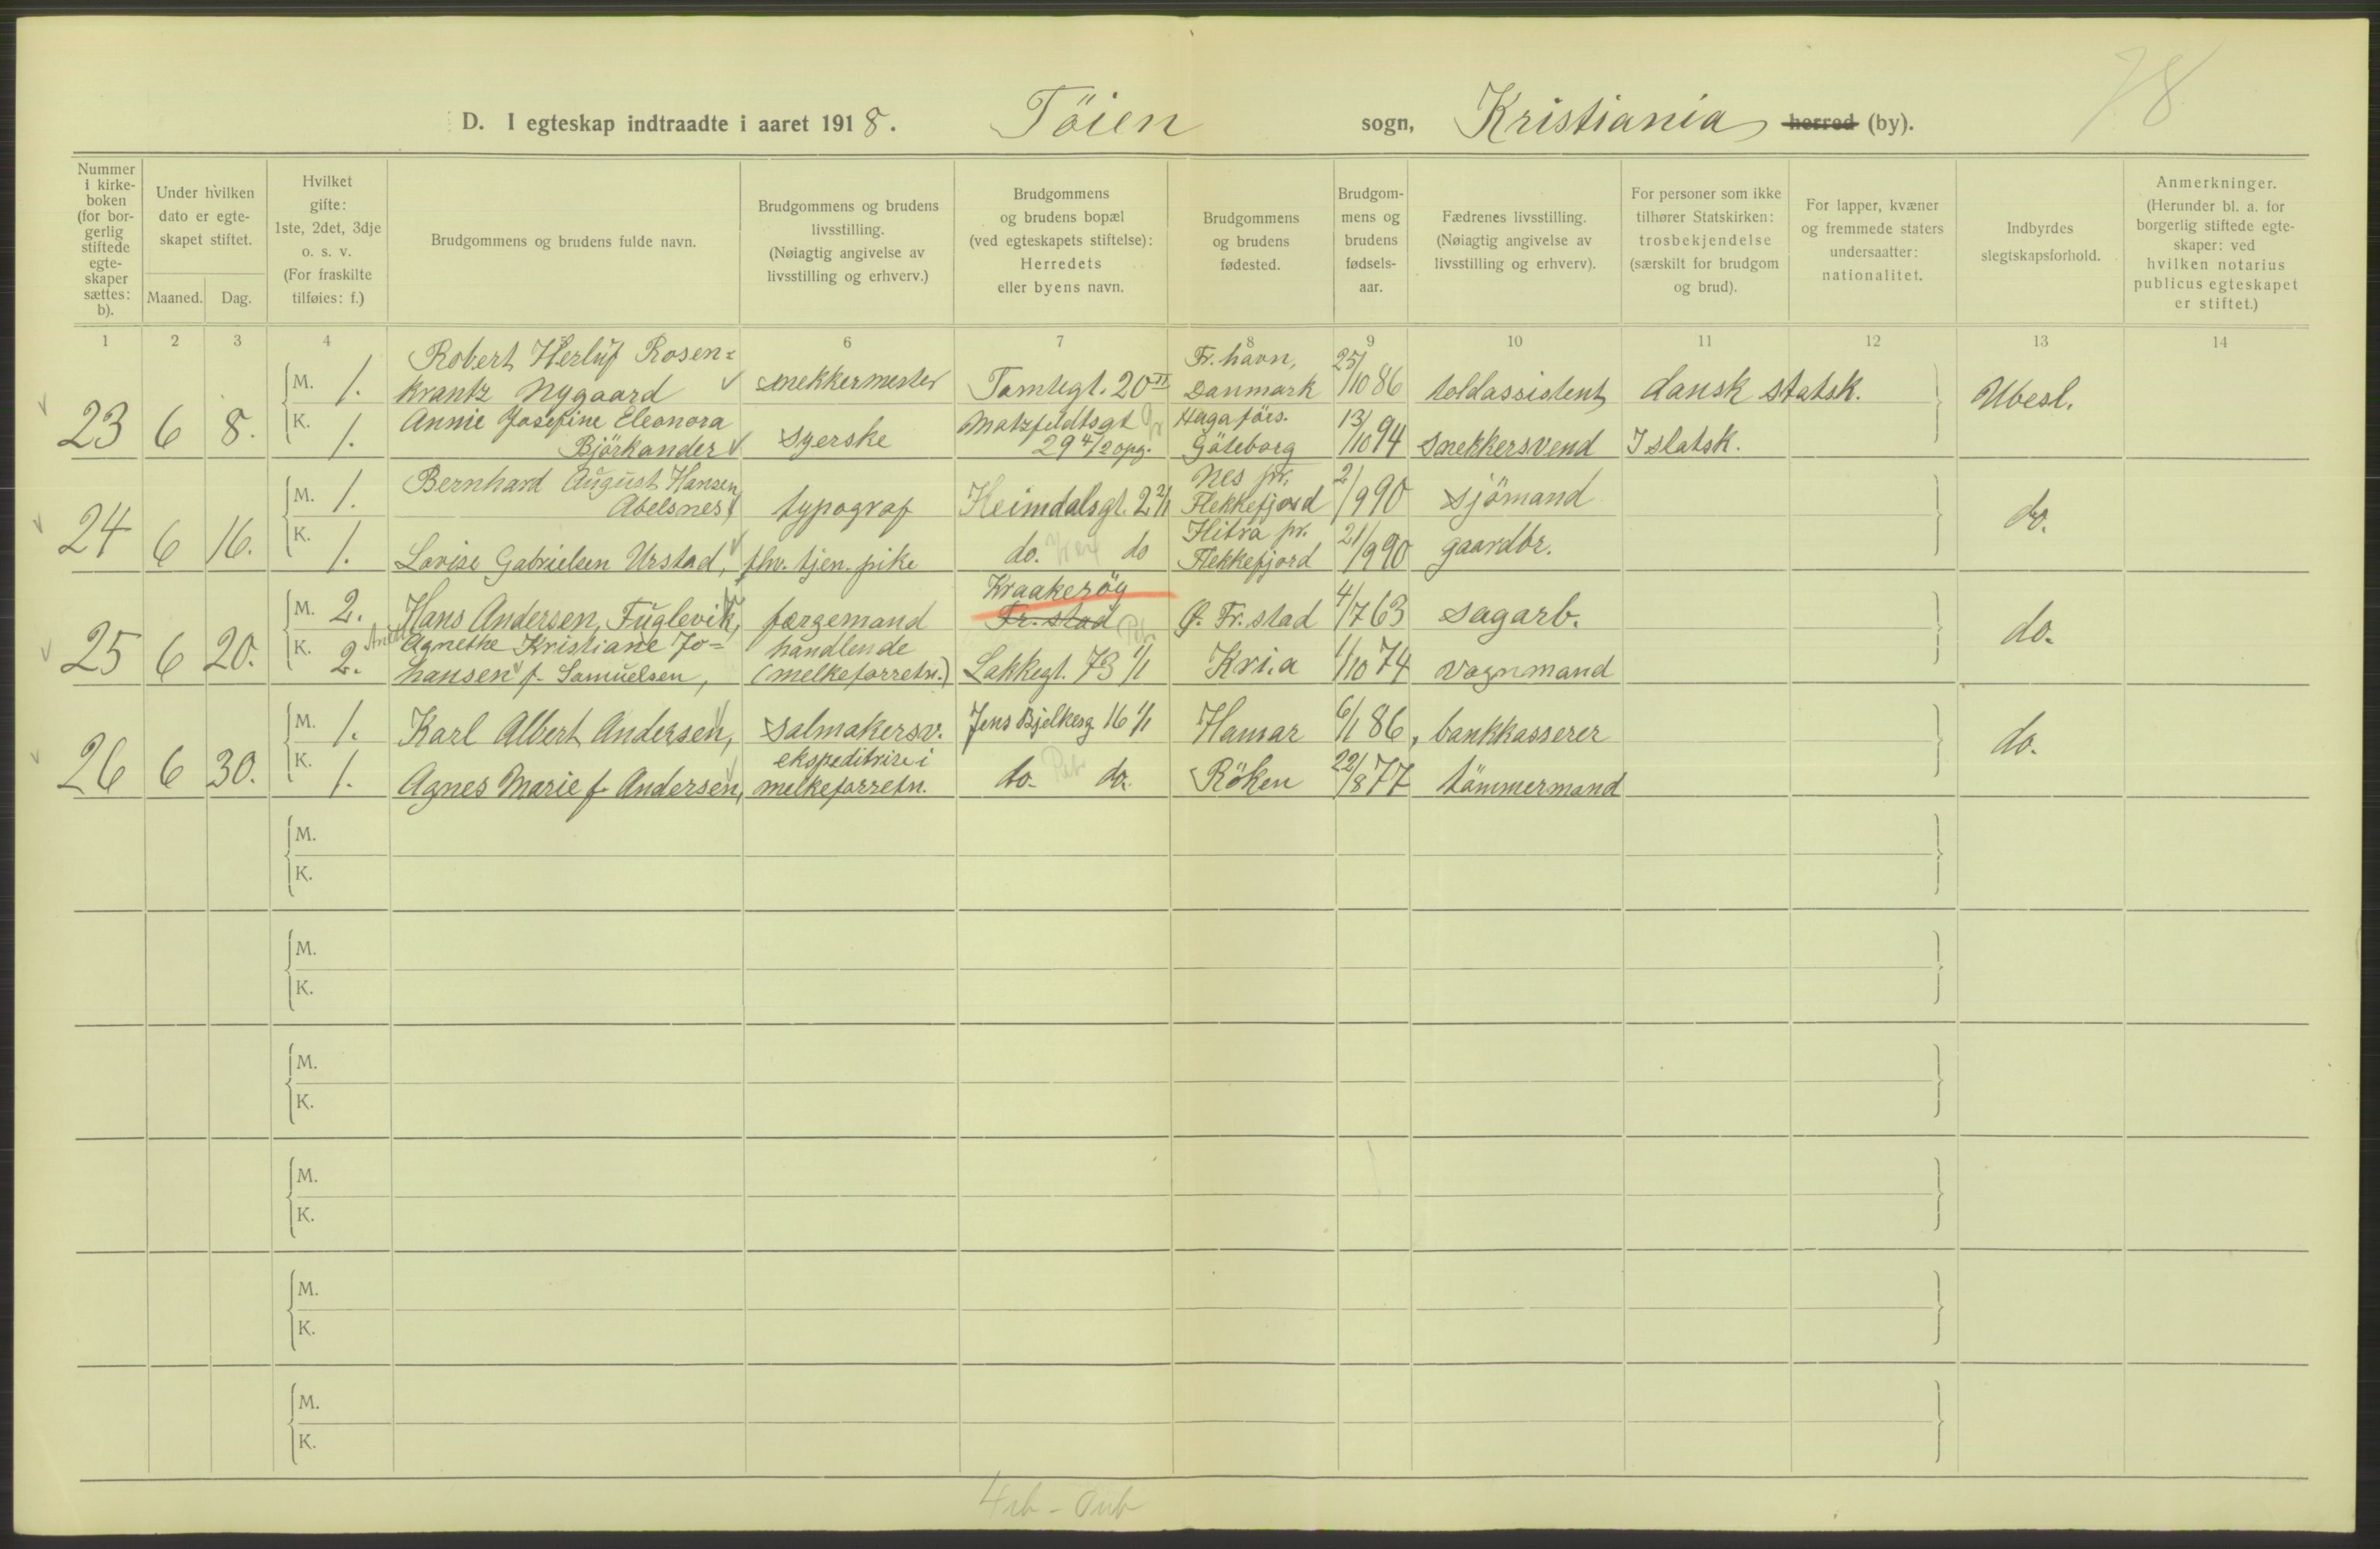 78
D. I egteskap indtraadte i aaret 1918. Töien sogn, Kristiania herred (by).
Nummer i kirke-boken (for bor-gerlig stiftede egte-skaper sættes: b).
Under hvilken dato er egte-skapet stiftet.
Maaned. Dag.
Hvilket gifte: 1ste, 2det, 3dje o. s. v. (For fraskilte tilføies: f.)
Brudgommens og brudens fulde navn.
Brudgommens og brudens livsstilling. (Nøiagtig angivelse av livsstilling og erhverv.)
Brudgommens og brudens bopæl (ved egteskapets stiftelse): Herredets eller byens navn.
Brudgommens og brudens fødested.
Brudgom-mens og brudens fødsels-aar.
Fædrenes livsstilling. (Nøiagtig angivelse av livsstilling og erhverv).
For personer som ikke tilhører Statskirken: trosbekjendelse (særskilt for brudgom og brud).
For lapper, kvæner og fremmede staters undersaatter: nationalitet.
Indbyrdes slegtskapsforhold.
Anmerkninger. (Herunder bl. a. for borgerlig stiftede egte-skaper: ved hvilken notarius publicus egteskapet er stiftet.)
1 2 3 4 6 7 8 9 10 11 12 13 14
23 6 8.
M. 1. Robert Herluf Rosen=
krantz Nygaard snekkermester Tomtegt. 20 II Fr. havn,
Danmark 25/10 86 toldassistent dansk statsk. Ubesl.
K. 1. Annie Josefine Eleonora
Björkander syerske Motzfeldtsgt
29 4/2 opg. Haga förs.
Göteborg 13/10 94 snekkersvend I statsk.
24 6 16.
M. 1. Bernhard August Hansen
Abelsnes, typograf Heimdalsgt. 2 2/1 Nes pr.
Flekkefjord 2/9 90 sjömand do.
K. 1. Lovise Gabrielsen Urstad, fhv. tjen. pike do. do Hitra pr.
Flekkefjord 21/9 90 gaardbr.
25 6 20.
M. 2. Hans Andersen, Fuglevik, færgemand Kraakeröy
Fr. stad Ø. Fr. stad 4/7 63 sagarb. do.
K. 2. Agnethe Kristiane Jo=
hansen f. Samuelsen, handlende
(melkeforretn.) Lakkegt. 73 1/1 Kri.a 1/10 74 vognmand
26 6 30.
M. 1. Karl Albert Andersen, salmakersv. Jens Bjelkesg. 16 1/1 Hamar 6/1 86, bankkasserer do.
K. 1. Agnes Marie f. Andersen, ekspeditrise i
melkeforretn. do. do. Röken 22/8 77 tömmermand
M.
K.
M.
K.
M.
K.
M.
K.
M.
K.
M.
K.